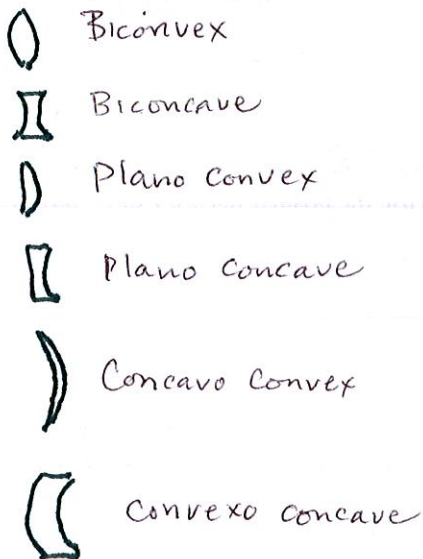 Biconvex
Biconcave
Plano Convex
Plano Concave
Concavo Convex
Convexo concave